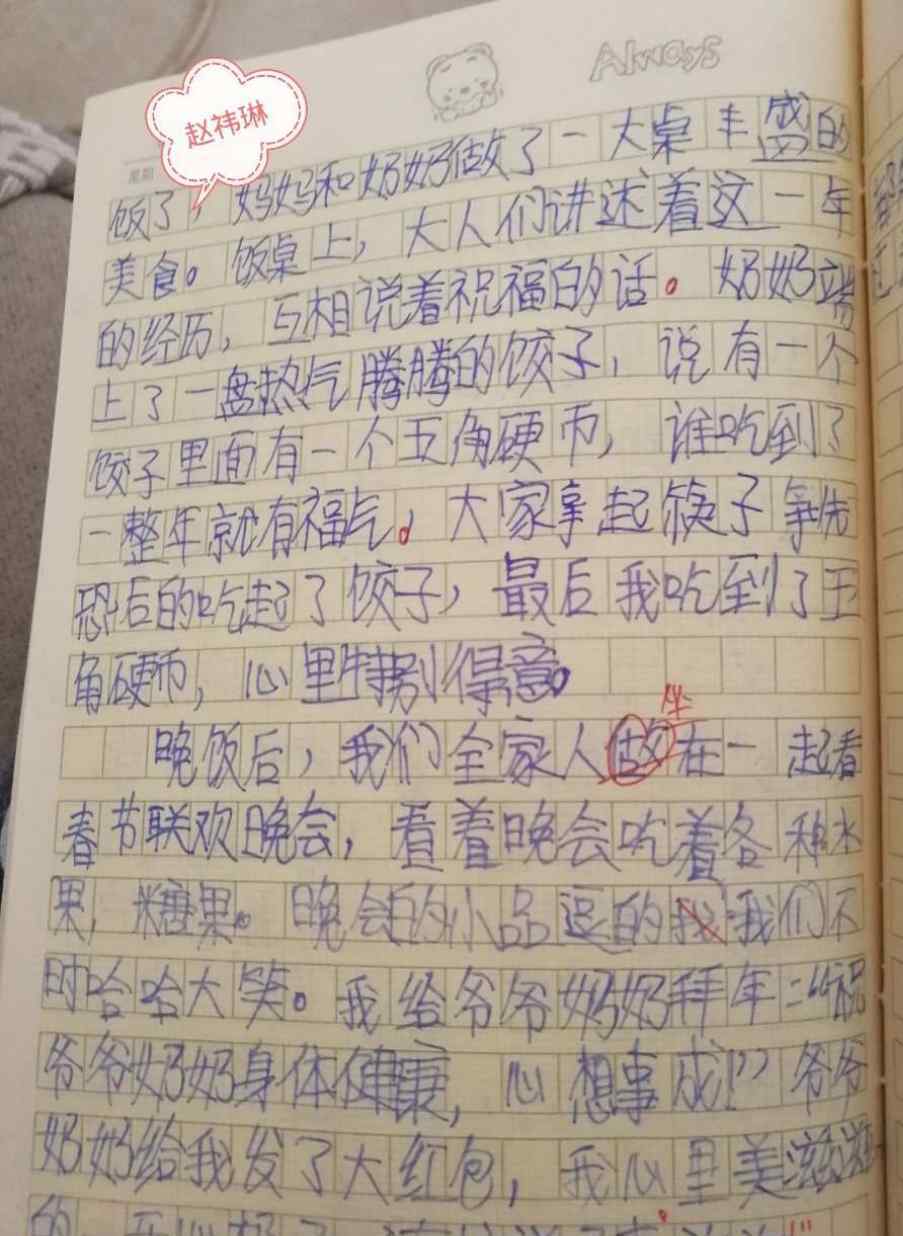 Always
赵祎琳
星期
饭了，妈妈和奶奶做了一大桌丰盛的
美食。饭桌上，大人们讲述着这一年
的经历，互相说着祝福的话。奶奶端
上了一盘热气腾腾的饺子，说有一个
饺子里面有一个五角硬币，谁吃到了
一整年就有福气。大家拿起筷子争先
恐后的吃起了饺子，最后我吃到了五
角硬币，心里特别得意。
坐
晚饭后，我们全家人做在一起看
春节联欢晚会，看着晚会吃着各种水
果，糖果。晚会的小品逗的我我们不
时哈哈大笑。我给爷爷奶奶拜年：“祝
爷爷奶奶身体健康，心想事成！”爷爷
奶奶给我发了大红包，我心里美滋滋
的